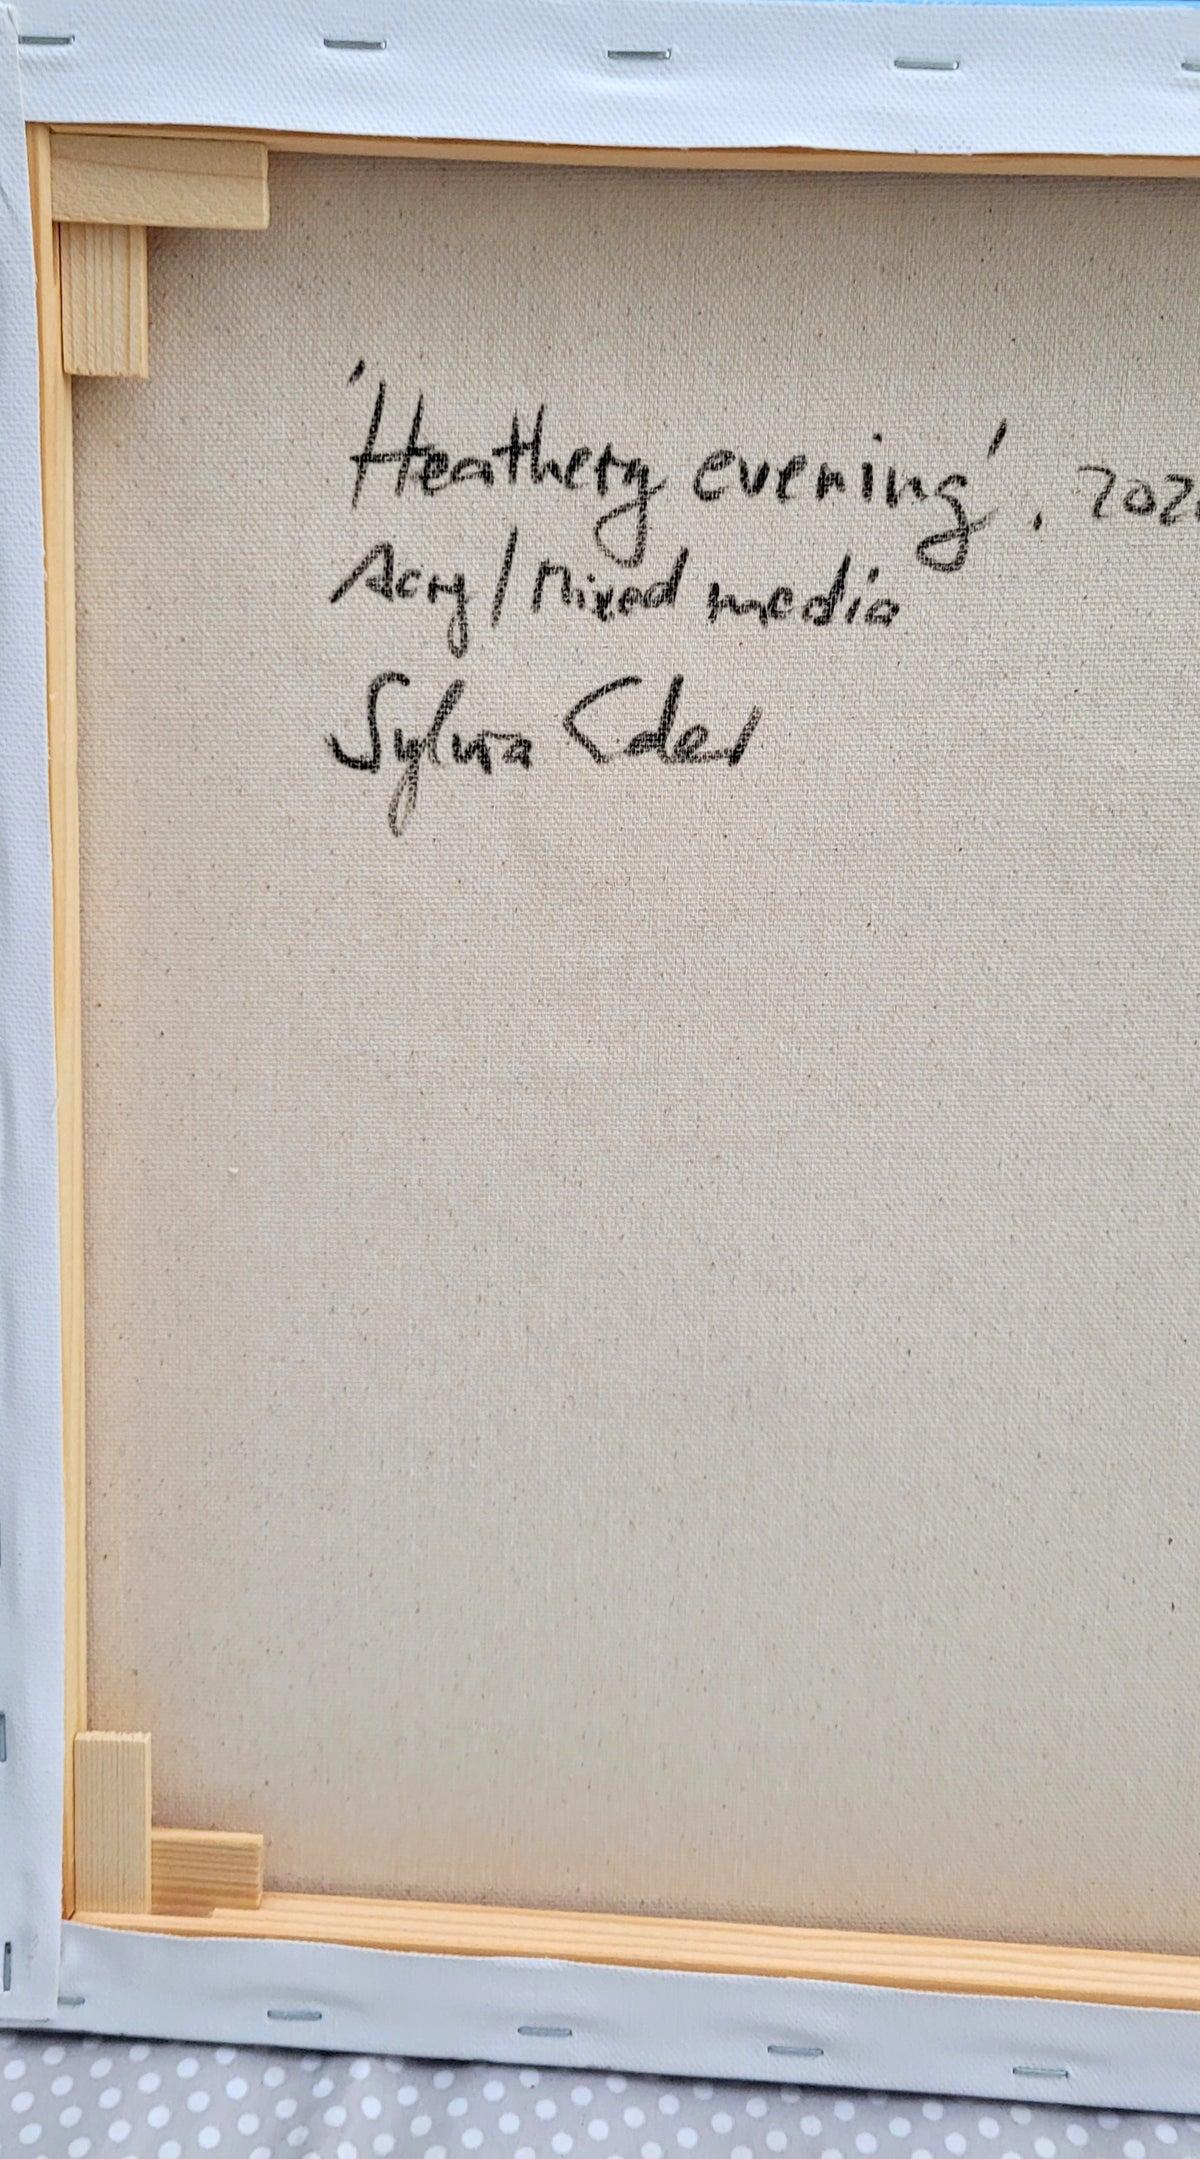 'Heathery evening'. 202
Acry/Mixed media
Sylvia Eder